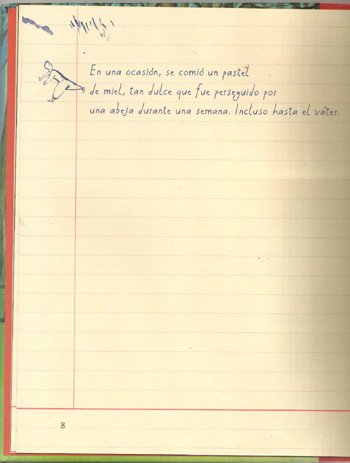 En una ocasión, se comió un pastel
de miel, tan dulce que fue perseguido por
una abeja durante una semana. Incluso hasta el váter.
8